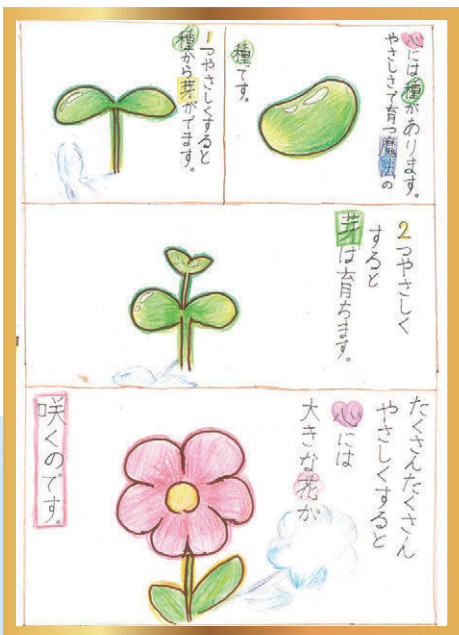 心には種があります。
やさしさで育つ魔法の
種です。
1つやさしくすると
種から芽がでます。
2つやさしく
すると
芽は育ちます。
たくさんたくさん
やさしくすると
心には
大きな花が
咲くのです。